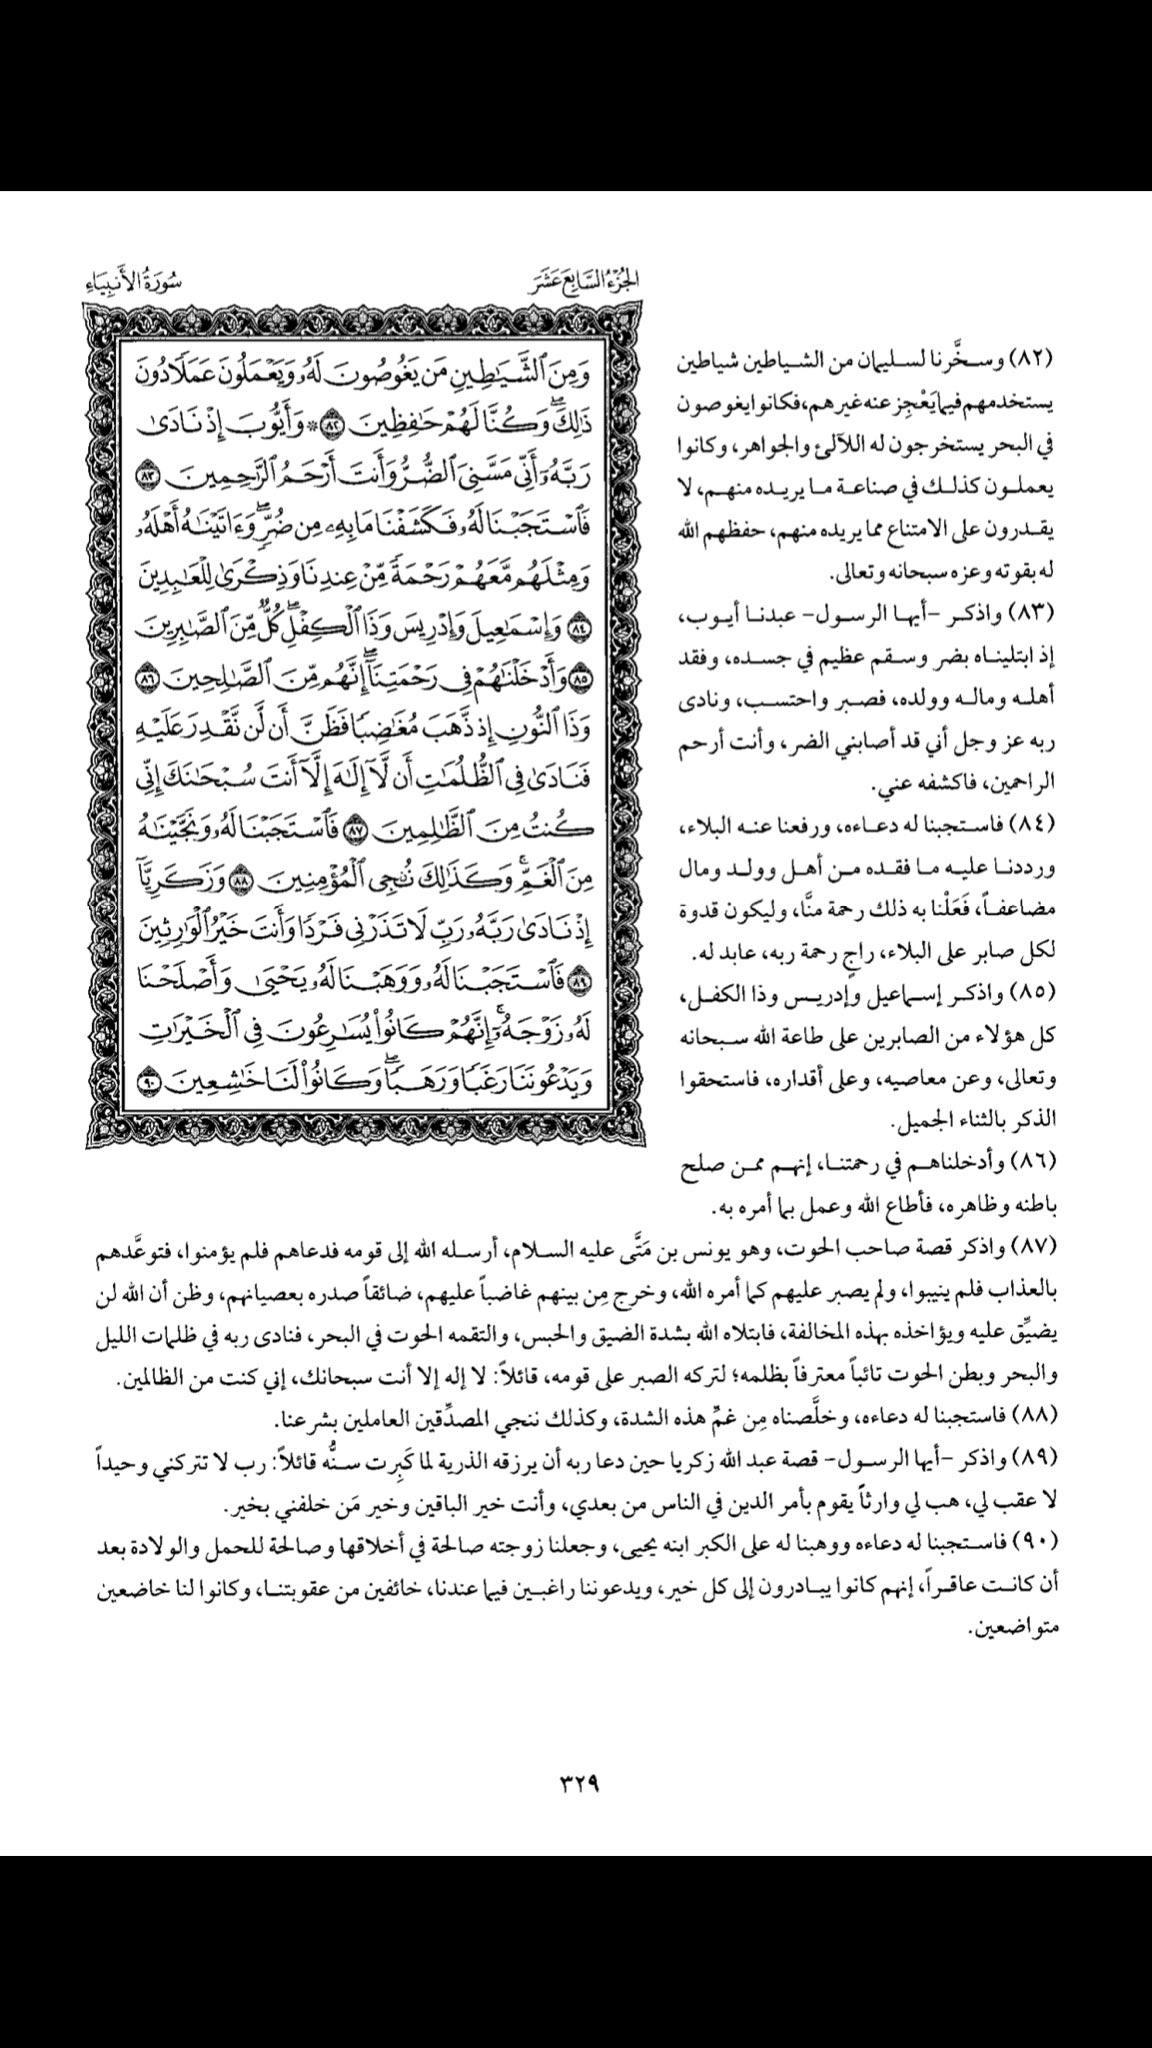 الجُزْءُ السَّابِعَ عَشَرَ
سُورَةُ الأَنبِيَاءِ
وَمِنَ ٱلشَّيَٰطِينِ مَن يَغُوصُونَ لَهُۥ وَيَعْمَلُونَ عَمَلًا دُونَ
ذَٰلِكَۖ وَكُنَّا لَهُمْ حَٰفِظِينَ ٨٢ ۞ وَأَيُّوبَ إِذْ نَادَىٰ
رَبَّهُۥٓ أَنِّى مَسَّنِىَ ٱلضُّرُّ وَأَنتَ أَرْحَمُ ٱلرَّٰحِمِينَ ٨٣
فَٱسْتَجَبْنَا لَهُۥ فَكَشَفْنَا مَا بِهِۦ مِن ضُرٍّۖ وَءَاتَيْنَٰهُ أَهْلَهُۥ
وَمِثْلَهُم مَّعَهُمْ رَحْمَةً مِّنْ عِندِنَا وَذِكْرَىٰ لِلْعَٰبِدِينَ
٨٤ وَإِسْمَٰعِيلَ وَإِدْرِيسَ وَذَا ٱلْكِفْلِۖ كُلٌّ مِّنَ ٱلصَّٰبِرِينَ
٨٥ وَأَدْخَلْنَٰهُمْ فِى رَحْمَتِنَآۖ إِنَّهُم مِّنَ ٱلصَّٰلِحِينَ ٨٦
وَذَا ٱلنُّونِ إِذ ذَّهَبَ مُغَٰضِبًا فَظَنَّ أَن لَّن نَّقْدِرَ عَلَيْهِ
فَنَادَىٰ فِى ٱلظُّلُمَٰتِ أَن لَّآ إِلَٰهَ إِلَّآ أَنتَ سُبْحَٰنَكَ إِنِّى
كُنتُ مِنَ ٱلظَّٰلِمِينَ ٨٧ فَٱسْتَجَبْنَا لَهُۥ وَنَجَّيْنَٰهُ
مِنَ ٱلْغَمِّۚ وَكَذَٰلِكَ نُۨجِى ٱلْمُؤْمِنِينَ ٨٨ وَزَكَرِيَّآ
إِذْ نَادَىٰ رَبَّهُۥ رَبِّ لَا تَذَرْنِى فَرْدًا وَأَنتَ خَيْرُ ٱلْوَٰرِثِينَ
٨٩ فَٱسْتَجَبْنَا لَهُۥ وَوَهَبْنَا لَهُۥ يَحْيَىٰ وَأَصْلَحْنَا
لَهُۥ زَوْجَهُۥٓۚ إِنَّهُمْ كَانُوا۟ يُسَٰرِعُونَ فِى ٱلْخَيْرَٰتِ
وَيَدْعُونَنَا رَغَبًا وَرَهَبًاۖ وَكَانُوا۟ لَنَا خَٰشِعِينَ ٩٠
(٨٢) وسخَّرنا لسليمان من الشياطين شياطين
يستخدمهم فيما يَعْجِز عنه غيرهم، فكانوا يغوصون
في البحر يستخرجون له اللآلئ والجواهر، وكانوا
يعملون كذلك في صناعة ما يريده منهم، لا
يقدرون على الامتناع مما يريده منهم، حفظهم الله
له بقوته وعزه سبحانه وتعالى.
(٨٣) واذكر -أيها الرسول- عبدنا أيوب،
إذ ابتليناه بضر وسقم عظيم في جسده، وفقد
أهله وماله وولده، فصبر واحتسب، ونادى
ربه عز وجل أني قد أصابني الضر، وأنت أرحم
الراحمين، فاكشفه عني.
(٨٤) فاستجبنا له دعاءه، ورفعنا عنه البلاء،
ورددنا عليه ما فقده من أهل وولد ومال
مضاعفاً، فَعَلْنا به ذلك رحمة منَّا، وليكون قدوة
لكل صابر على البلاء، راجٍ رحمة ربه، عابد له.
(٨٥) واذكر إسماعيل وإدريس وذا الكفل،
كل هؤلاء من الصابرين على طاعة الله سبحانه
وتعالى، وعن معاصيه، وعلى أقداره، فاستحقوا
الذكر بالثناء الجميل.
(٨٦) وأدخلناهم في رحمتنا، إنهم ممن صلح
باطنه وظاهره، فأطاع الله وعمل بما أمره به.
(٨٧) واذكر قصة صاحب الحوت، وهو يونس بن مَتَّى عليه السلام، أرسله الله إلى قومه فدعاهم فلم يؤمنوا، فتوعَّدهم
بالعذاب فلم ينيبوا، ولم يصبر عليهم كما أمره الله، وخرج مِن بينهم غاضباً عليهم، ضائقاً صدره بعصيانهم، وظن أن الله لن
يضيِّق عليه ويؤاخذه بهذه المخالفة، فابتلاه الله بشدة الضيق والحبس، والتقمه الحوت في البحر، فنادى ربه في ظلمات الليل
والبحر وبطن الحوت تائباً معترفاً بظلمه؛ لتركه الصبر على قومه، قائلاً: لا إله إلا أنت سبحانك، إني كنت من الظالمين.
(٨٨) فاستجبنا له دعاءه، وخلَّصناه مِن غمِّ هذه الشدة، وكذلك ننجي المصدِّقين العاملين بشرعنا.
(٨٩) واذكر -أيها الرسول- قصة عبد الله زكريا حين دعا ربه أن يرزقه الذرية لما كَبِرت سنُّه قائلاً: رب لا تتركني وحيداً
لا عقب لي، هب لي وارثاً يقوم بأمر الدين في الناس من بعدي، وأنت خير الباقين وخير مَن خلفني بخير.
(٩٠) فاستجبنا له دعاءه ووهبنا له على الكبر ابنه يحيى، وجعلنا زوجته صالحة في أخلاقها وصالحة للحمل والولادة بعد
أن كانت عاقراً، إنهم كانوا يبادرون إلى كل خير، ويدعوننا راغبين فيما عندنا، خائفين من عقوبتنا، وكانوا لنا خاضعين
متواضعين.
٣٢٩